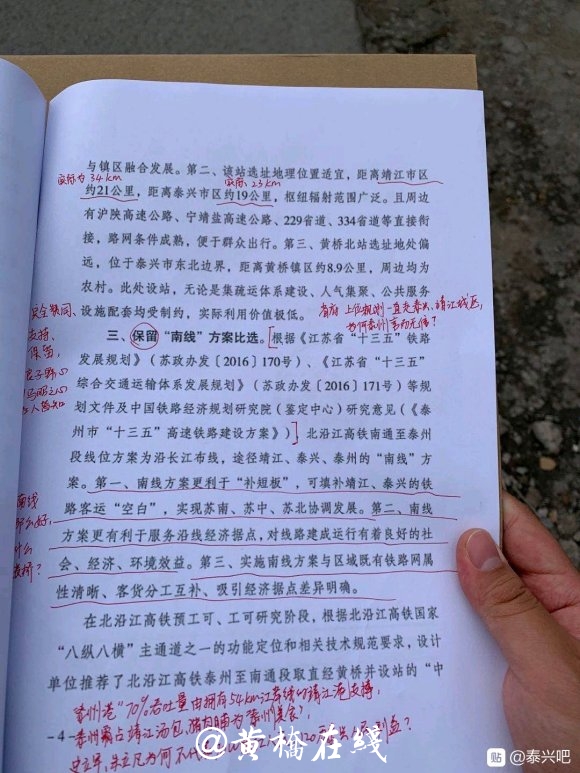 与镇区融合发展。第二、该站选址地理位置适宜，距离靖江市区
实际为34km
实际23km
约21公里，距离泰兴市区约19公里，枢纽辐射范围广泛。且周边
有沪陕高速公路、宁靖盐高速公路、229省道、334省道等直接衔
接，路网条件成熟，便于群众出行。第三、黄桥北站选址地处偏
远，位于泰兴市东北边界，距离黄桥镇区约8.9公里，周边均为
农村。此处设站，无论是集疏运体系建设、人气集聚、公共服务
设施配套均受制约，实际利用价值极低。
省府上位规划一直走泰兴、靖江城区，
为何泰州
完全赞同、
支持、
保留，
三、保留“南线”方案比选。根据《江苏省“十三五”铁路
发展规划》（苏政办发【2016】170号）、《江苏省“十三五”
综合交通运输体系发展规划》（苏政办发【2016】171号）等规
划文件及中国铁路经济规划研究院（鉴定中心）研究意见（《泰
州市“十三五”高速铁路建设方案》），北沿江高铁南通至泰州
段线位方案为沿长江布线，途径靖江、泰兴、泰州的“南线”方
案。第一、南线方案更利于“补短板”，可填补靖江、泰兴的铁
路客运“空白”，实现苏南、苏中、苏北协调发展。第二、南线
方案更有利于服务沿线经济据点，对线路建成运行有着良好的社
会、经济、环境效益。第三、实施南线方案与区域既有铁路网属
性清晰、客货分工互补、吸引经济据点差异明确。
南线
那么好，
什么
在北沿江高铁预工可、工可研究阶段，根据北沿江高铁国家
“八纵八横”主通道之一的功能定位和相关技术规范要求，设计
单位推荐了北沿江高铁泰州至南通段取直经黄桥并设站的“中
"泰州港"70%吞吐量由拥有54km江岸线的靖江港支撑，
-4-
泰州霸占靖江汤包，猪肉脯为泰州美食？
@黄桥在线
贴 @泰兴吧